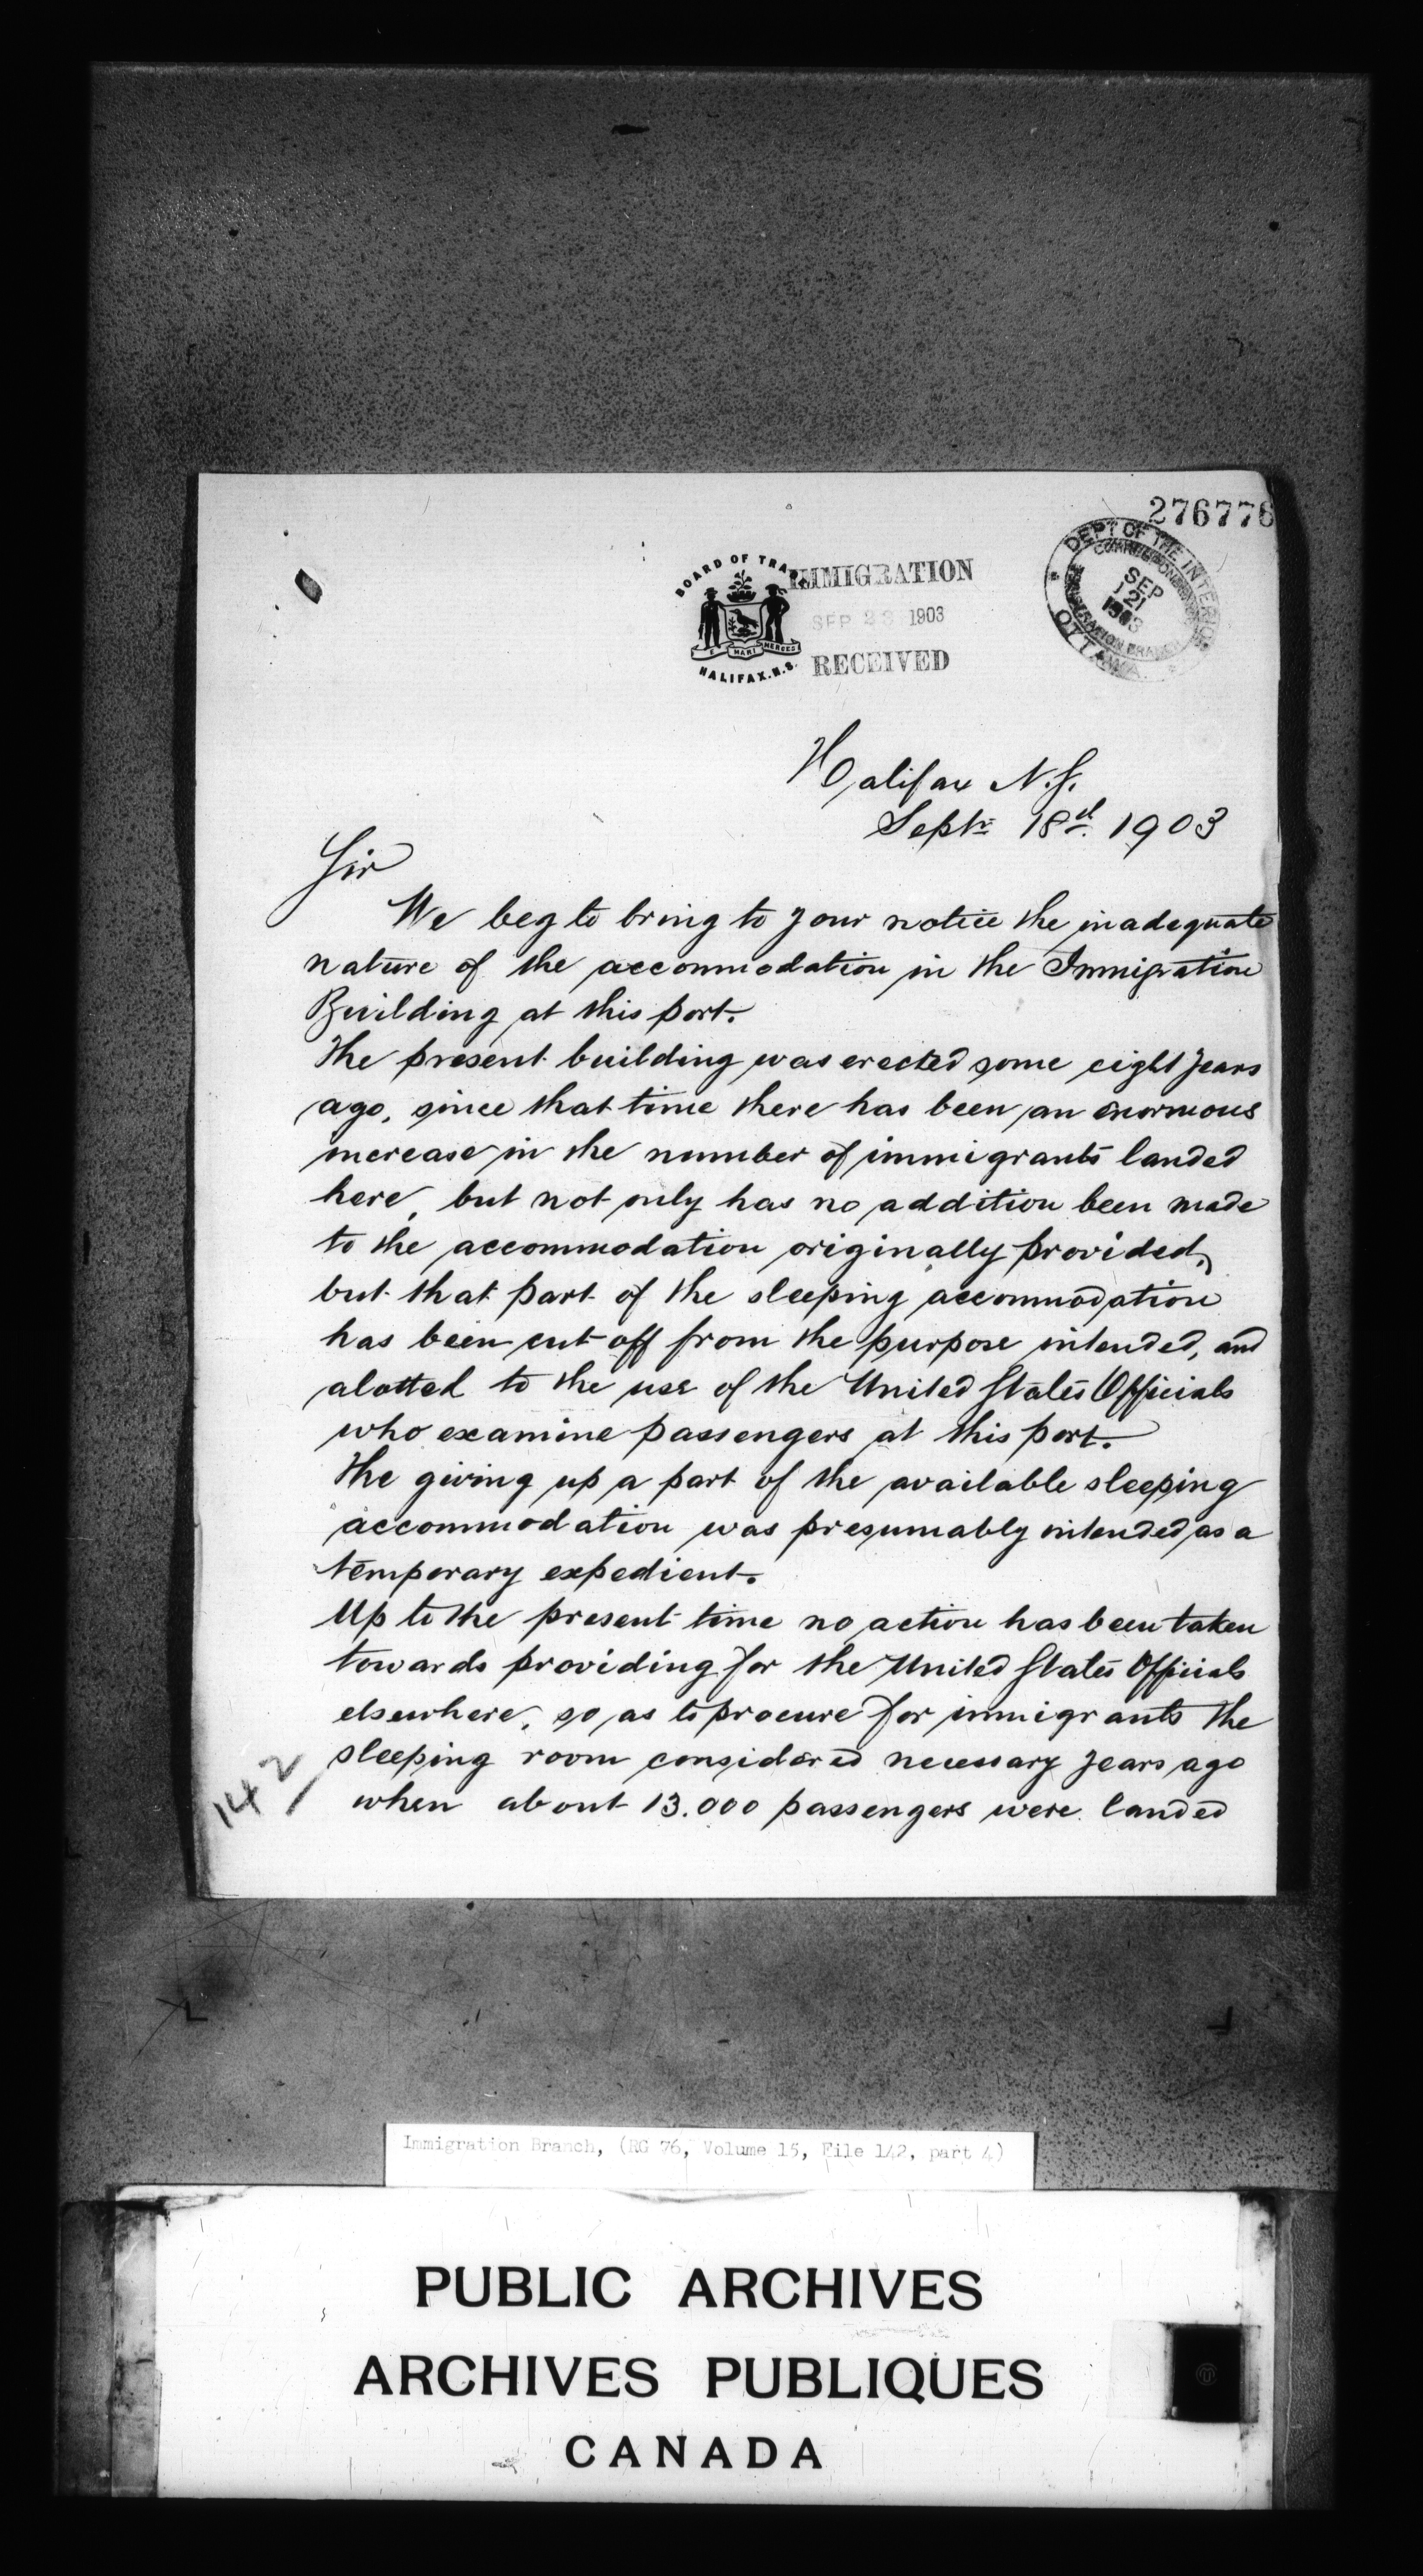 276776
BOARD OF TRA
HALIFAX. N.S.
E MARI MERCES
IMMIGRATION
SEP 23 1903
RECEIVED
DEPT OF THE INTERIOR
SEP
21
1903
OTTAWA
Halifax N.S.
Septr 18d. 1903
Sir
We beg to bring to your notice the inadequate
nature of the accommodation in the Immigration
Building at this port.
The present building was erected some eight years
ago, since that time there has been an enormous
increase in the number of immigrants landed
here, but not only has no addition been made
to the accommodation originally provided,
but that part of the sleeping accommodation
has been cut off from the purpose intended, and
alotted to the use of the United States Officials
who examine passengers at this port.
The giving up a part of the available sleeping
accommodation was presumably intended as a
temporary expedient.
Up to the present time no action has been taken
towards providing for the United States Officials
elsewhere, so as to procure for immigrants the
sleeping room considered necessary years ago
when about 13.000 passengers were landed
142
Immigration Branch, (RG 76, Volume 15, File 142, part 4)
PUBLIC ARCHIVES
ARCHIVES PUBLIQUES
CANADA